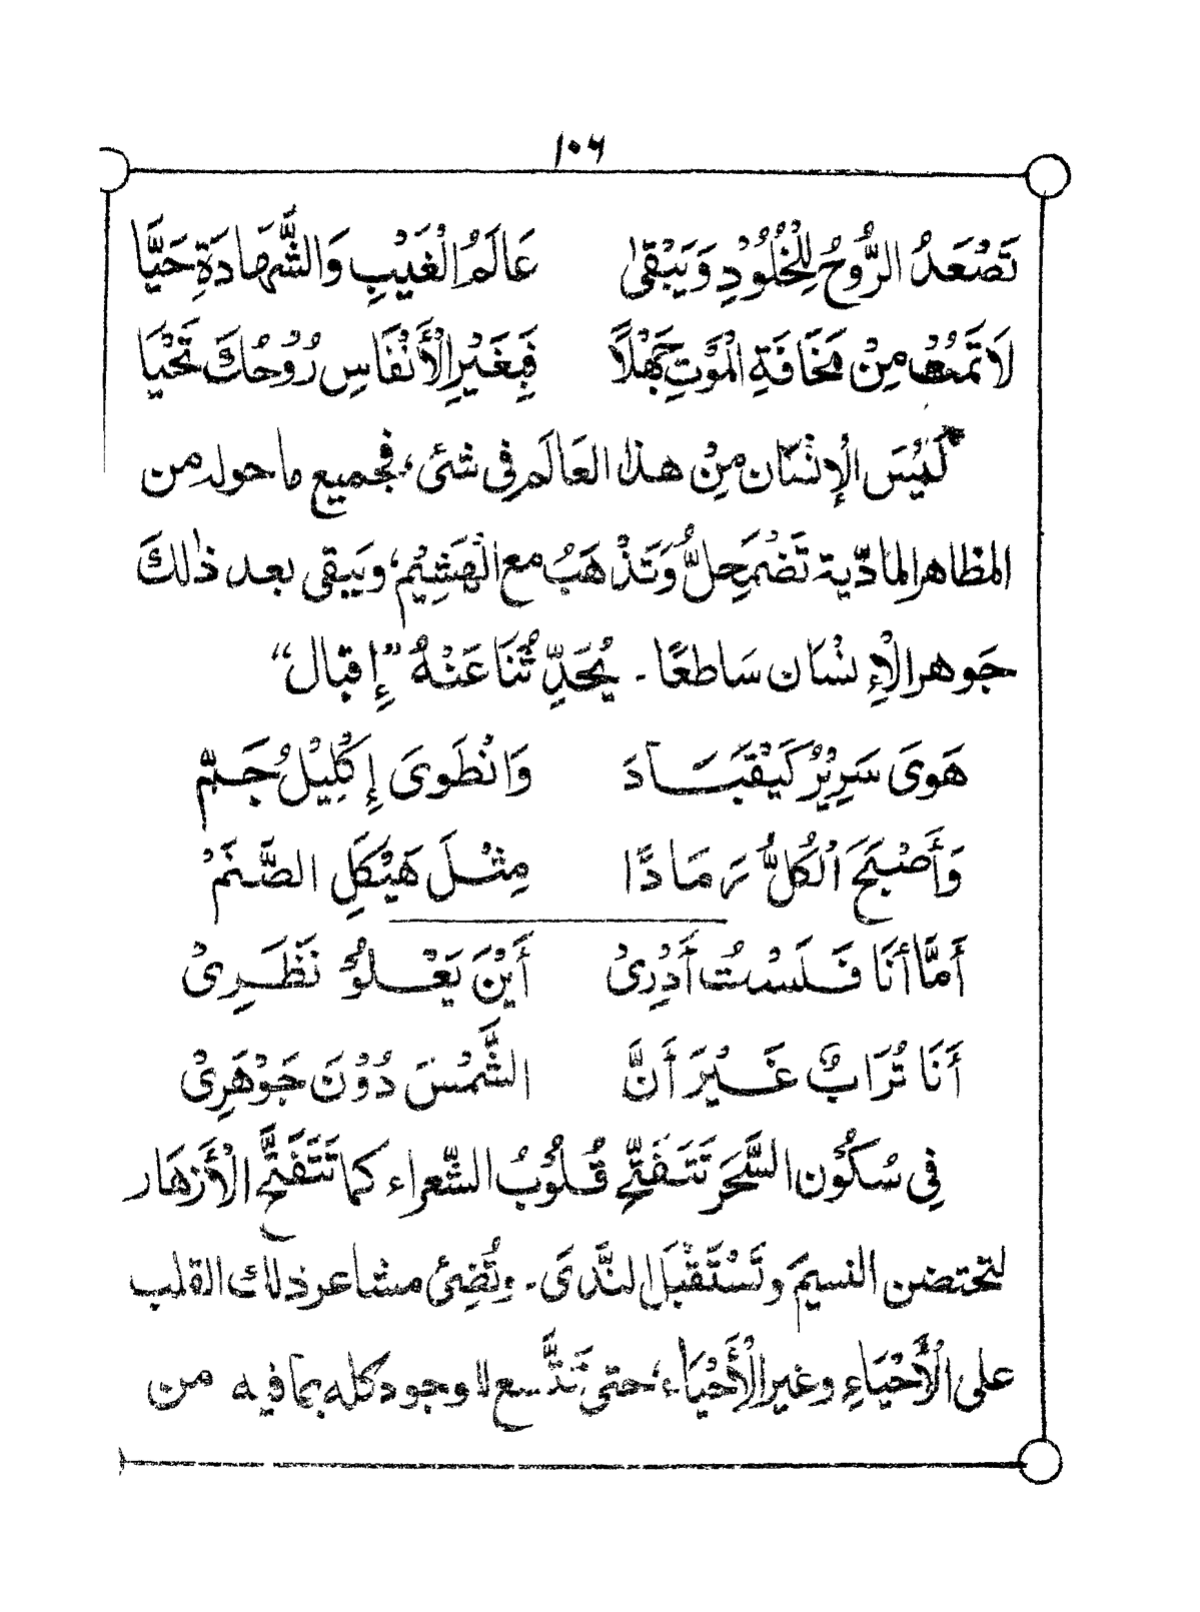 ١٠٦
تَصْعَدُ الرُّوحُ لِلْخُلُوْدِ وَيَبْقىٰ عَالَمُ الْغَيْبِ وَالشَّهَادَةِ حَيًّا
لَا تَمُتْ مِنْ مَخَافَةِ الْمَوْتِ جَهْلًا فَبِغَيْرِ الْأَنْفَاسِ رُوْحُكَ تَحْيَا
لَيْسَ الْإِنْسَان مِنْ هذا العَالَم فِى شئ، فجميع ما حوله من
المظاهر المادّية تَضْمَحِلُّ وَتَذْهَبُ مع الْهَشِيْم، ويَبقى بعد ذٰلكَ
جَوهر الْإِنْسَان سَاطعًا ـ يُحَدِّثُنَا عَنْهُ ”إِقبال“
هَوَى سَرِيْرُ كَيْقَبَـادَ وَانْطَوىَ إِكْلِيْلُ جَـمّ
وَأَصْبَحَ الْكُلُّ رَمَادًا مِثْـلَ هَيْكَلِ الصَّنَمْ
أَمَّا أَنَا فَـلَسْتُ أَدْرِىْ أَيْنَ يَعْـلُوْ نَظَـرِىْ
أَنَا تُرَابٌ غَـيْرَ أَنَّ الشَّمْسَ دُوْنَ جَوْهَرِىْ
فِى سُكُوْن السَّحَر تَتَفَتَّح قُلُوْبُ الشّعراء كما تَتَفَتَّح الْأَزهَار
لتحتضن النسيمَ وتَسْتَقْبَل النَّدَى ـ وتُضِئ مشاعر ذلك القلب
على الْأَحْيَاءِ وغير الْأَحْيَاء، حتى تَتَّسع لاوجود كله بما فيه من